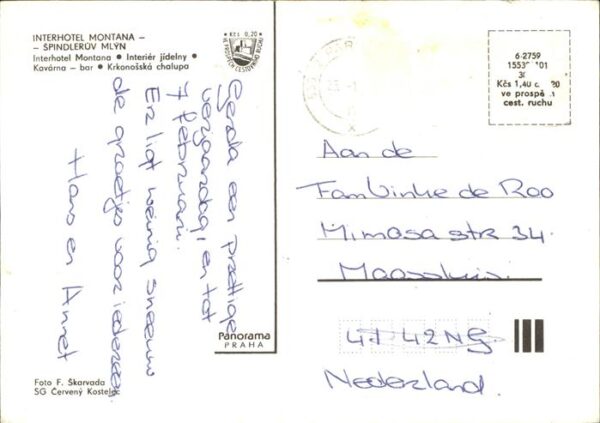 INTERHOTEL MONTANA –
– ŠPINDLERŮV MLÝN
Interhotel Montana • Interiér jídelny •
Kavárna – bar • Krkonošská chalupa
• Kčs 0,20 •
VE PROSPĚCH CESTOVNÍHO RUCHU
6-2759
Kčs 1,40
ve prospě
cest. ruchu
Gerda een prettige
verjaardag, en tot
7 februari.
Er ligt weinig sneeuw
de groetjes voor iedereen
Hans en Annet
Aan de
Fam Vinke de Roo
Mimosa str 34.
Maassluis.
42 NG
Nederland.
Panorama
PRAHA
Foto F. Škarvada
SG Červený Kostelec